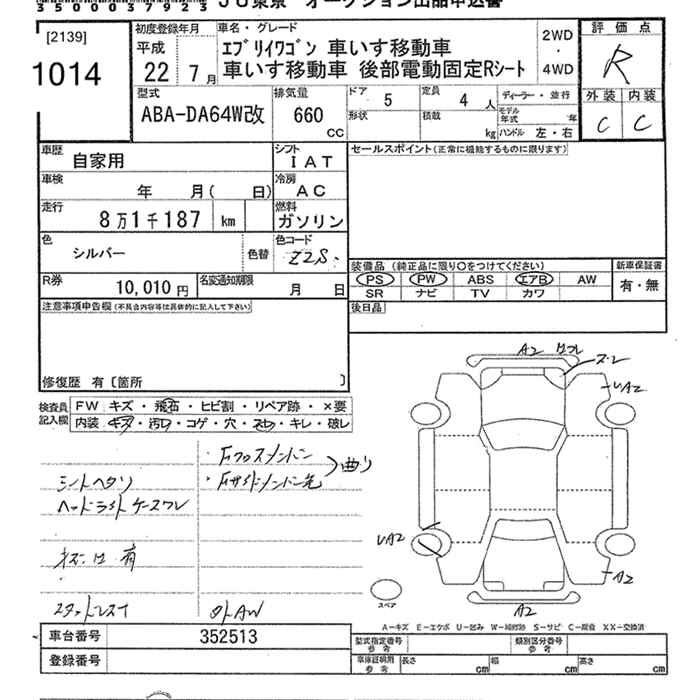 35000037923 JU東京 オークション出品申込書
[2139]
1014
初度登録年月
平成
22年 7月
車名・グレード
エブリイワゴン 車いす移動車
車いす移動車 後部電動固定Rシート
2WD
・
4WD
評価点
R
外装 内装
C C
型式
ABA-DA64W改
排気量
660
CC
ドア 5
定員 4 人
形状
積載 kg
ディーラー・並行
モデル年式 年
ハンドル 左・右
車歴
自家用
シフト
IAT
セールスポイント(正常に機能するものに限ります)
車検
年 月( 日)
冷房
AC
走行
8万1千187 km
燃料
ガソリン
色
シルバー
色替
色コード
Z2S.
装備品 (純正品に限り○をつけてください)
PS PW ABS エアB AW
SR ナビ TV カワ
新車保証書
有・無
R券
10,010 円
名変通知期限
月 日
後日品
注意事項申告欄(不具合内容等は具体的に記入して下さい)
修復歴 有〔箇所 〕
検査員記入欄
FW キズ・飛石・ヒビ割・リペア跡・×要
内装 キズ・汚レ・コゲ・穴・スレ・キレ・破レ
・Fクロスメンバー
・Fサイドメンバー先
曲り
シートヘタリ
ヘッドライトケースワレ
ネジ口有
スタットレス
外AW
A2 ワレ
ズレ
UA2
UA2
A2
A2
スペア
A-キズ E-エクボ U-凹み W-補修跡 S-サビ C-腐食 XX-交換済
車台番号 352513
登録番号
型式指定番号 参考
類別区分番号 参考
車庫証明用 参考
長さ cm
幅 cm
高さ cm